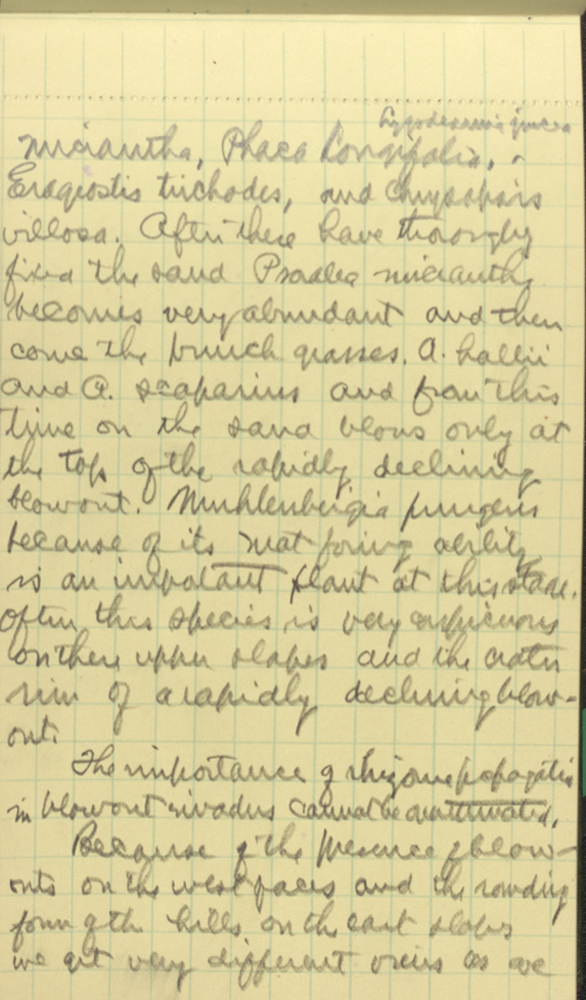 Lygodesmia juncea
micrantha, Phaca longifolia,
Eragrostis trichodes, and Chrysopsis
villosa. After these have thorougly
fixed the sand Psoralea micrantha
becomes very abundant and then
come the bunch grasses. A. hallii
and A. scoparius and from this
time on the sand blows only at
the top of the rapidly declining
blowout. Muhlenbergia pungens
because of its mat foring ability
is an important plant at this stage.
Often this species is very conspicuous
on there upper slopes and the crater
rim of a rapidly declining blow-
out.
The importance of rhizome propagation
in blowout invaders cannot be overestimated.
Because of the presence of blow-
outs on the west faces and the rounding
form of the hills on the east slopes
we get very different views as we